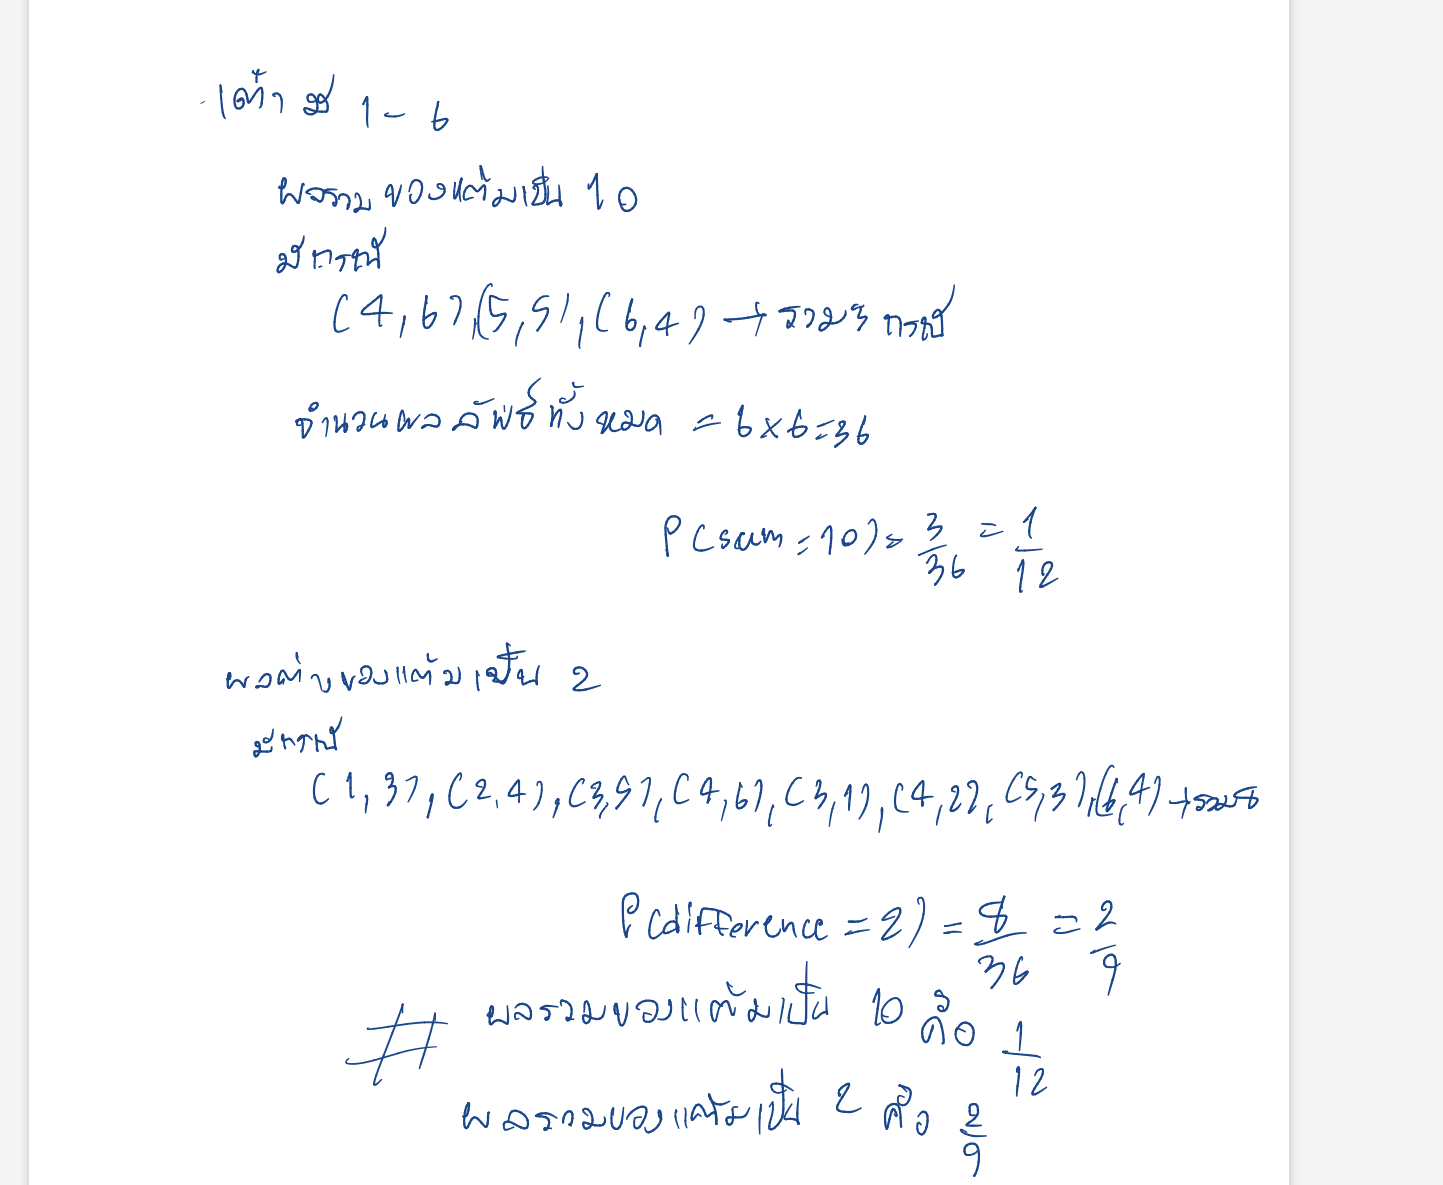 เต๋า มี 1 - 6
ผลรวมของแต้มเป็น 10
มีกรณี
(4,6),(5,5),(6,4) → รวม 3 กรณี
จำนวนผลลัพธ์ทั้งหมด = 6 x 6 = 36
P(sum = 10) = 3/36 = 1/12
ผลต่างของแต้มเป็น 2
มีกรณี
(1,3), (2,4), (3,5), (4,6), (3,1), (4,2), (5,3), (6,4) → รวม 8
P(difference = 2) = 8/36 = 2/9
# ผลรวมของแต้มเป็น 10 คือ 1/12
ผลรวมของแต้มเป็น 2 คือ 2/9